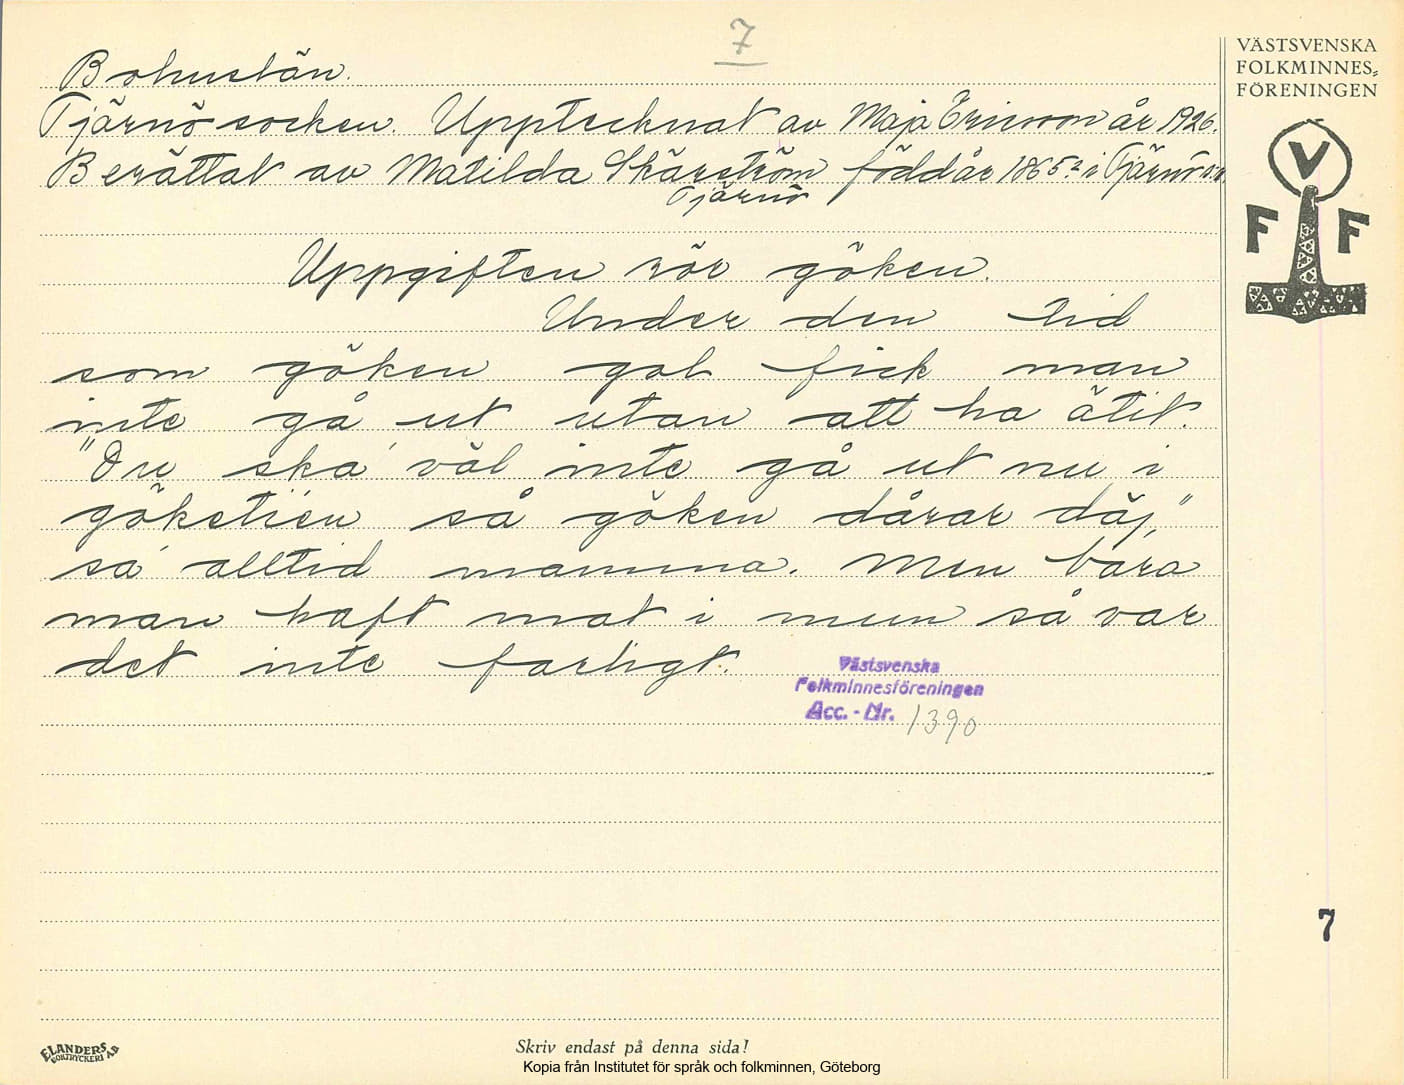 7
Bohuslän.
Tjärnö socken. Upptecknat av Maja Ericson år 1926.
Berättat av Matilda Skärström född år 1865? i Tjärnö s:n
Tjärnö
Uppgiften rör göken.
Under den tid
som göken gol fick man
inte gå ut utan att ha ätit.
"Du ska väl inte gå ut nu i
göketien så göken dårar däj,"
sa alltid mamma. Men bara
man haft mat i mun så var
det inte farligt.
Västsvenska
Folkminnesföreningen
Acc. - Nr. 1390
VÄSTSVENSKA
FOLKMINNES-
FÖRENINGEN
V
F F
7
ELANDERS
BOKTRYCKERI AB
Skriv endast på denna sida!
Kopia från Institutet för språk och folkminnen, Göteborg